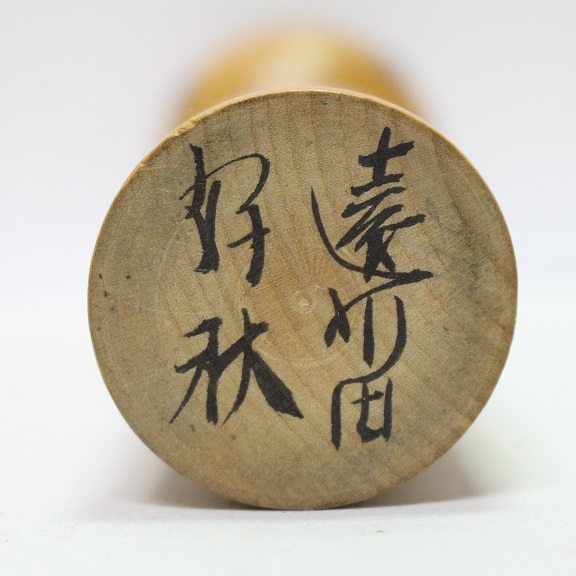 遠刈田
好秋